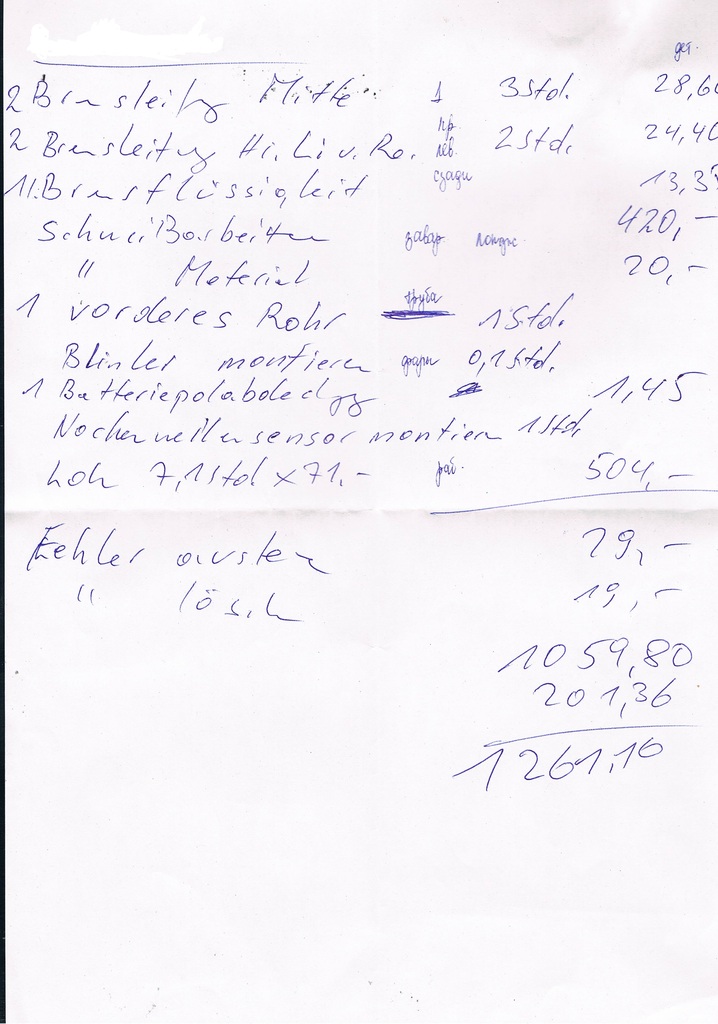 дет.
2 Bremsleitg Mitte 1 3 Std. 28,60
2 Bremsleitung Hi. Li u. Re. пр. лев. 2 Std. 24,40
1l. Bremsflüssigkeit сзади 13,3
Schweißarbeiten завар. 420,-
" Material 20,-
1 vorderes Rohr труба 1 Std.
Blinker montieren фары 0,1 Std.
1 Batteriepolabdeckg 1,45
Nockenwellensensor montieren 1 Std.
Loh 7,1 Std x 71.- раб. 504,-
Fehler auslesen 29,-
" lösch 19,-
1059,80
201,36
1261,16